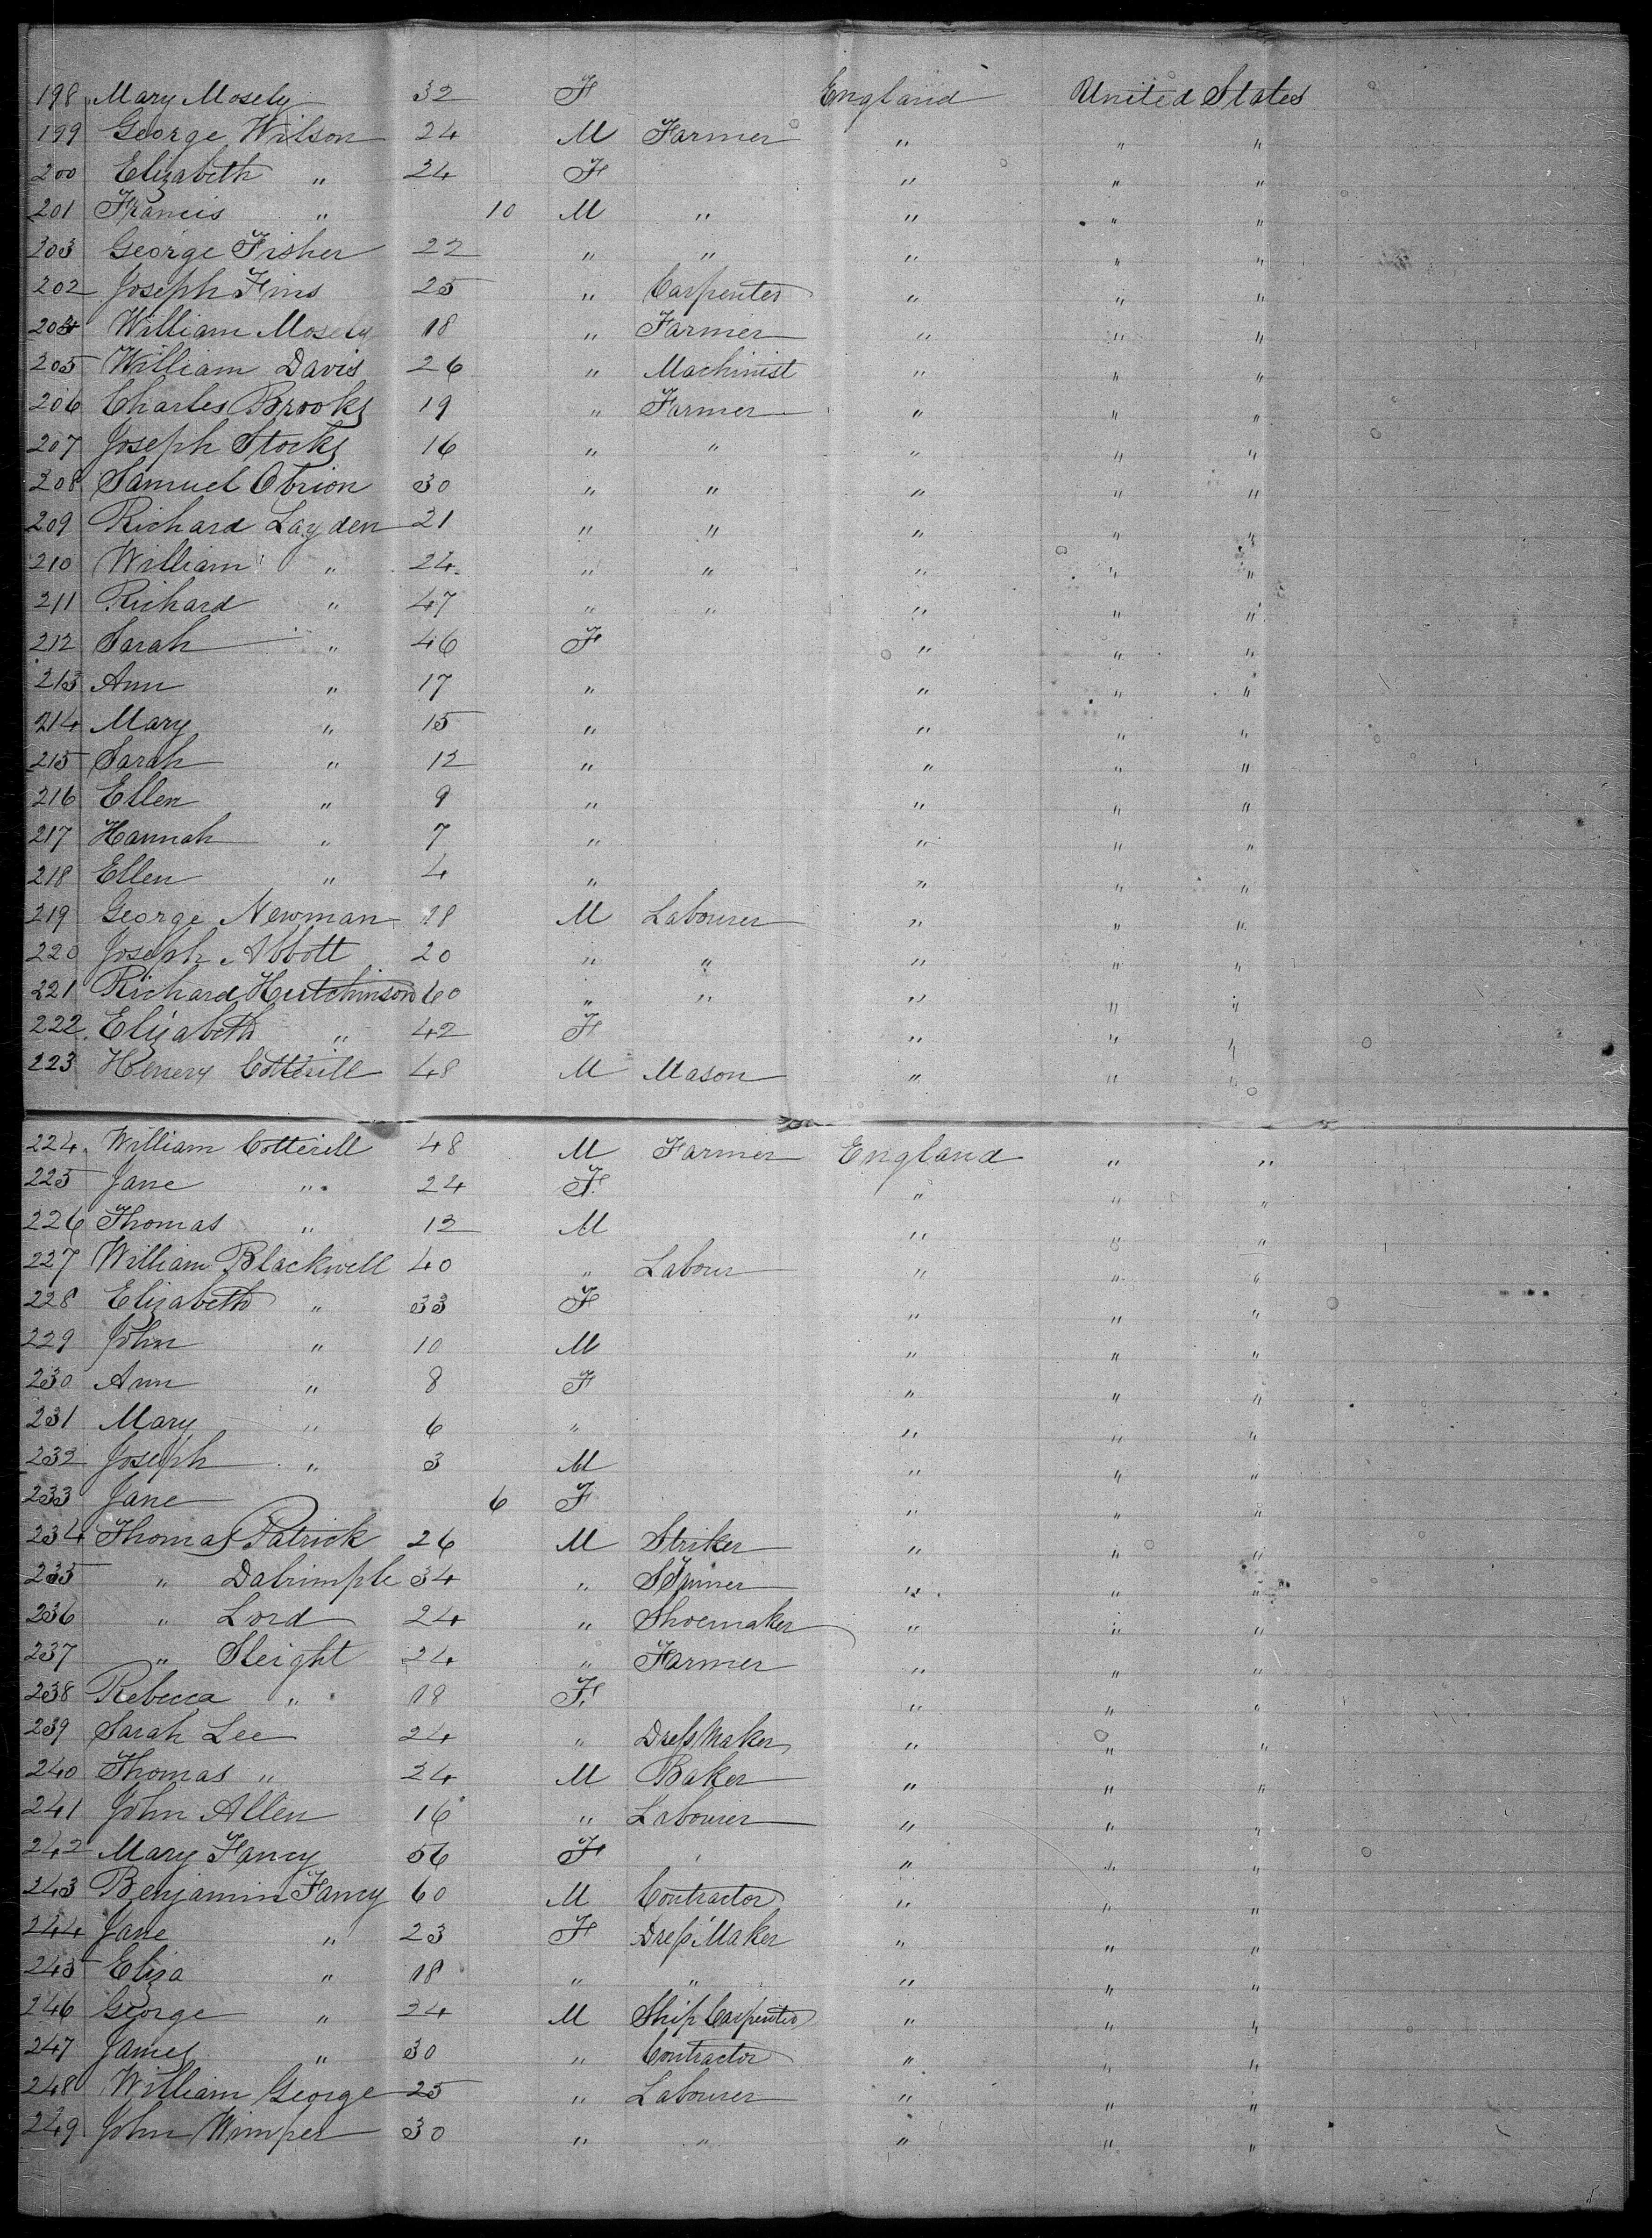 198 Mary Mosely 32 F England United States
199 George Wilson 24 M Farmer " " "
200 Elizabeth " 24 F " " "
201 Francis " 10 M " " " "
203 George Fisher 22 " " " " "
202 Joseph Fins 25 " Carpenter " " "
204 William Mosely 18 " Farmer " " "
205 William Davis 26 " Machinist " " "
206 Charles Brooks 19 " Farmer " " "
207 Joseph Stocks 16 " " " " "
208 Samuel Obrion 30 " " " " "
209 Richard Layden 21 " " " " "
210 William " 24 " " " " "
211 Richard " 47 " " " " "
212 Sarah " 46 F " " "
213 Ann " 17 " " " "
214 Mary " 15 " " " "
215 Sarah " 12 " " " "
216 Ellen " 9 " " " "
217 Hannah " 7 " " " "
218 Ellen " 4 " " " "
219 George Newman 18 M Labourer " " "
220 Joseph Abbott 20 " " " " "
221 Richard Hutchinson 60 " " " " "
222 Elizabeth " 42 F " " "
223 Henery Cotterill 48 M Mason " " "
224 William Cotterill 48 M Farmer England " "
225 Jane " 24 F " " "
226 Thomas " 12 M " " "
227 William Blackwell 40 " Labour " " "
228 Elizabeth " 33 F " " "
229 John " 10 M " " "
230 Ann " 8 F " " "
231 Mary " 6 " " " "
232 Joseph " 3 M " " "
233 Jane 6 F " " "
234 Thomas Patrick 26 M Striker " " "
235 " Dalrimple 34 " " " "
236 " Lord 24 " Shoemaker " " "
237 " Sleight 24 " Farmer " " "
238 Rebecca " 18 F " " "
239 Sarah Lee 24 " Dress Maker " " "
240 Thomas " 24 M Baker " " "
241 John Allen 16 " Labourer " " "
242 Mary Fancy 56 F " " "
243 Benjamin Fancy 60 M Contractor " " "
244 Jane " 23 F Dress Maker " " "
245 Eliza " 18 " " " " "
246 George " 24 M Ship Carpenter " " "
247 James " 30 " Contractor " " "
248 William George 25 " Labourer " " "
249 John Wimper 30 " " " " "